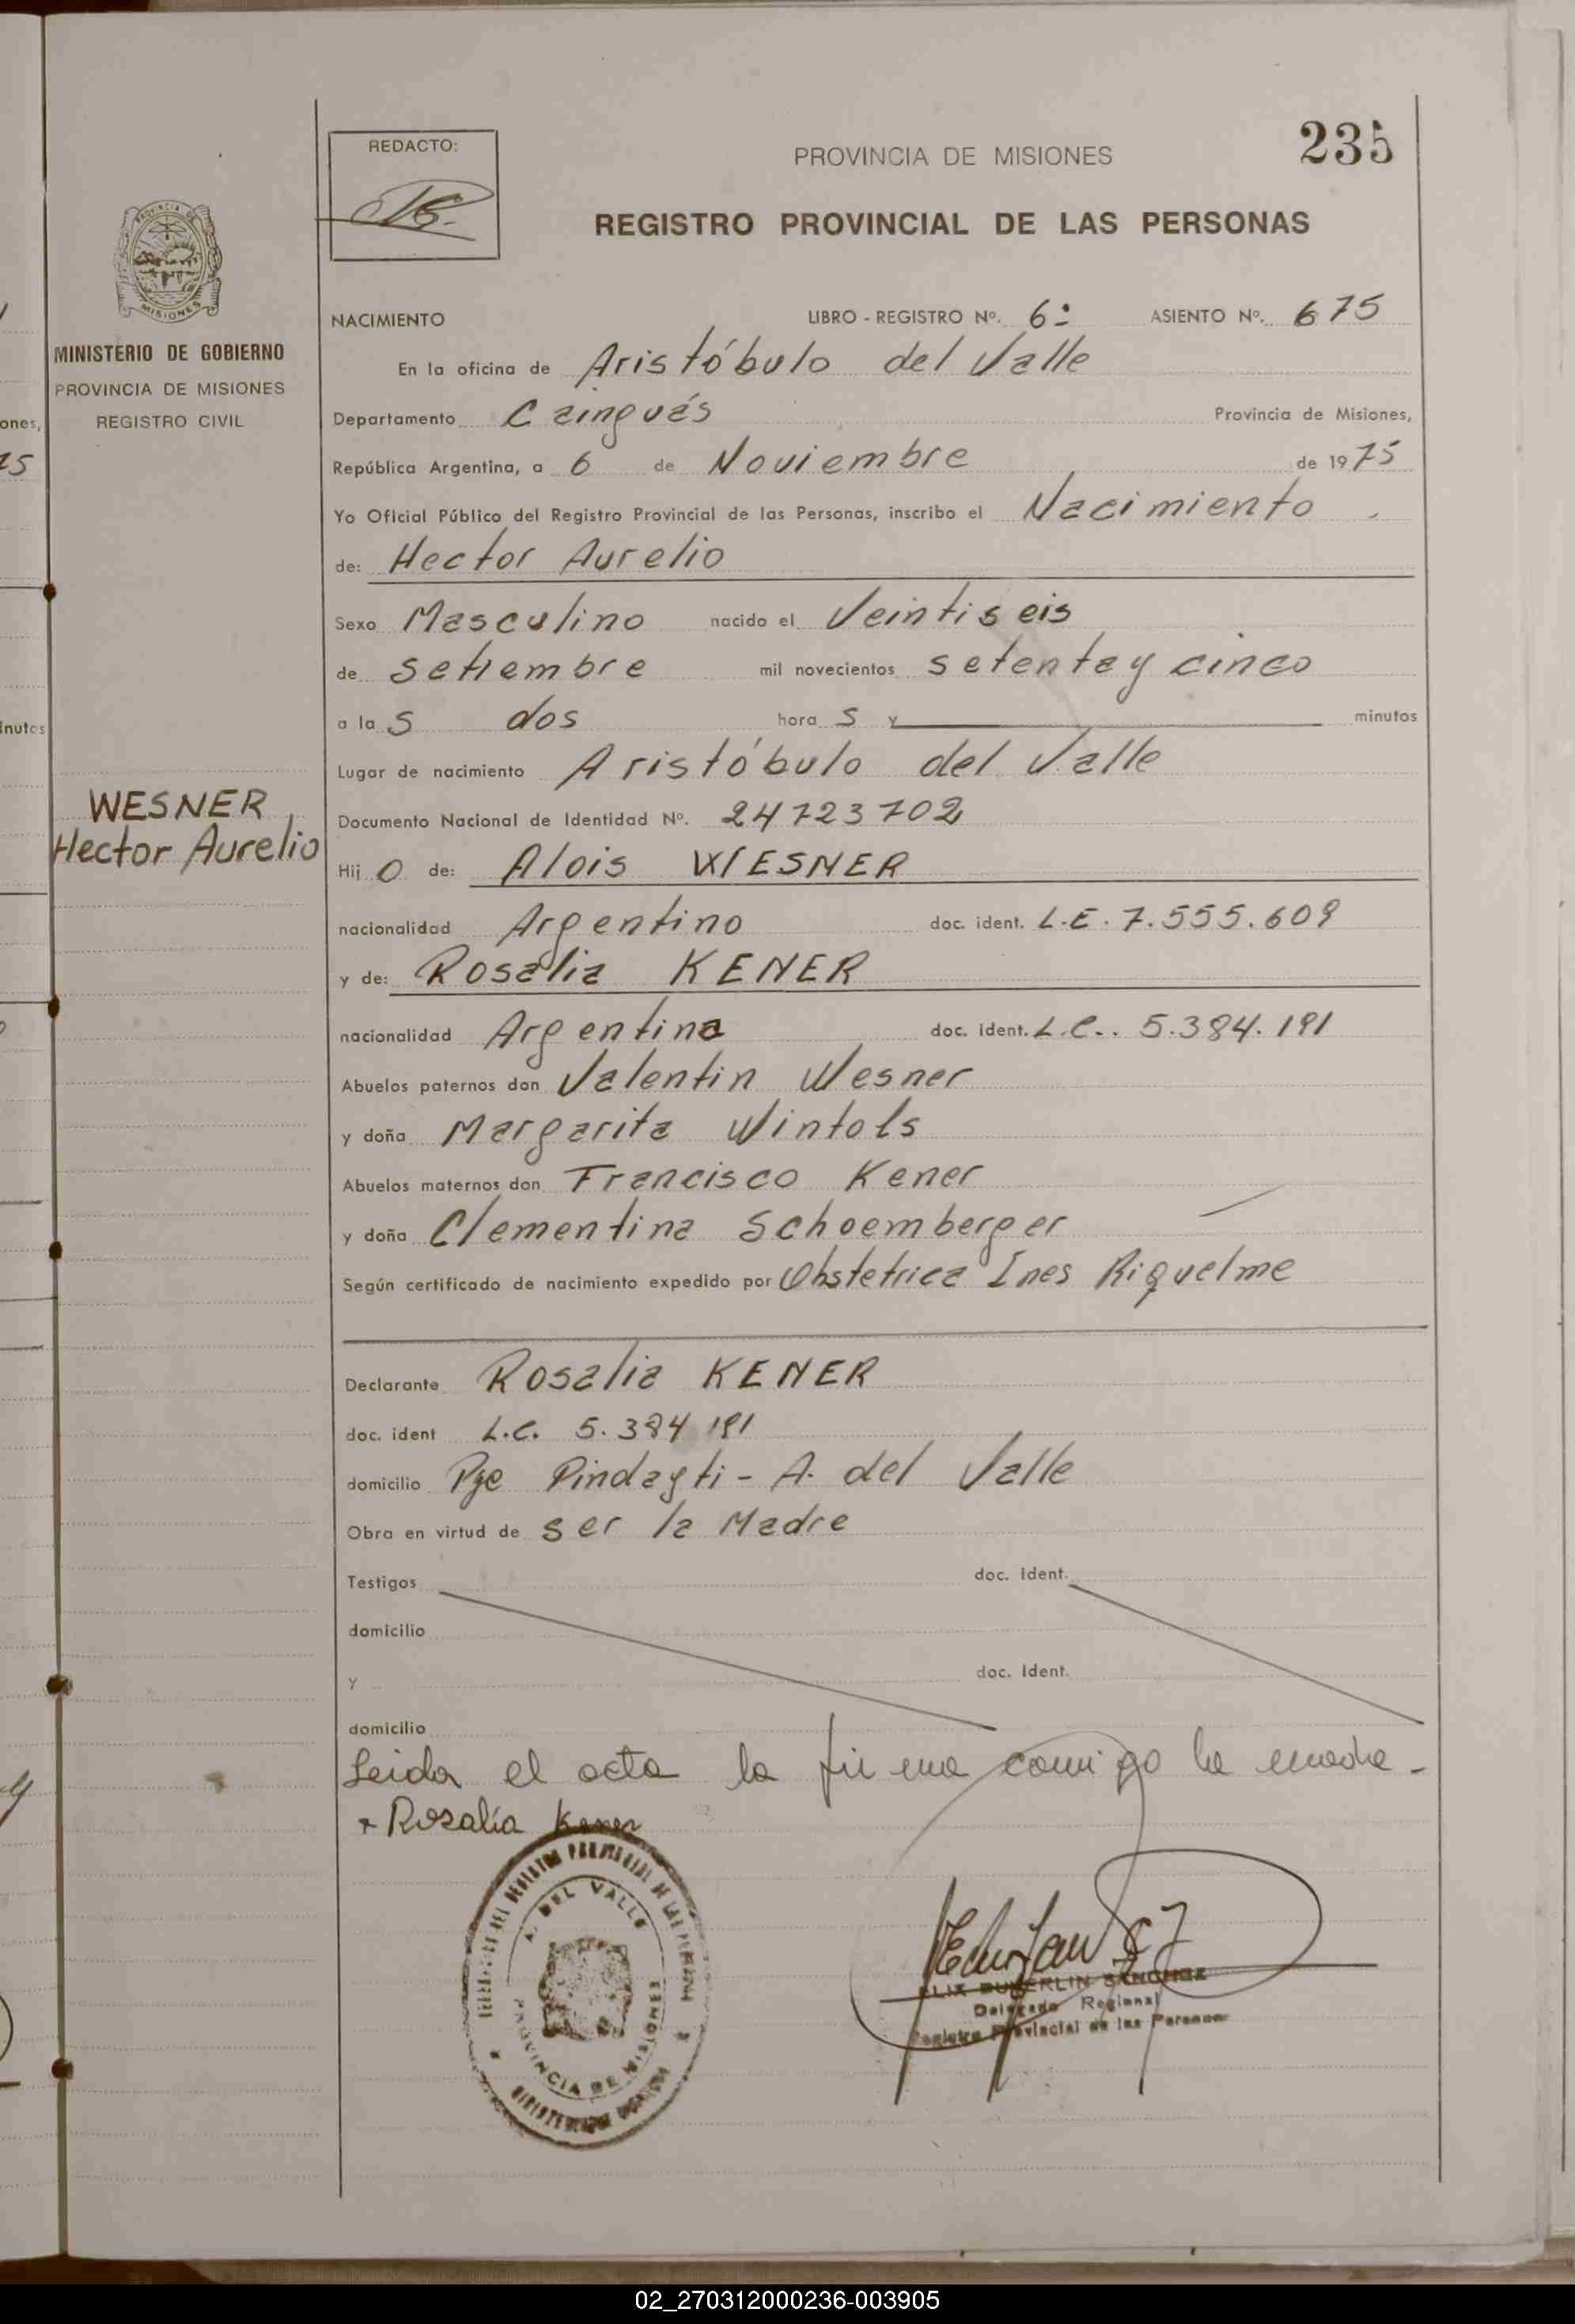 235
REDACTO:
PROVINCIA DE MISIONES
REGISTRO PROVINCIAL DE LAS PERSONAS
MISIONES
MINISTERIO DE GOBIERNO
PROVINCIA DE MISIONES
REGISTRO CIVIL
NACIMIENTO LIBRO - REGISTRO Nº. 6º ASIENTO Nº. 675
En la oficina de Aristóbulo del Valle
Departamento Cainguás Provincia de Misiones,
República Argentina, a 6 de Noviembre de 1975
Yo Oficial Público del Registro Provincial de las Personas, inscribo el Nacimiento
de: Hector Aurelio
Sexo Masculino nacido el Veintiseis
de Setiembre mil novecientos setenta y cinco
a las dos horas y minutos
Lugar de nacimiento Aristóbulo del Valle
WESNER
Hector Aurelio
Documento Nacional de Identidad Nº. 24723702
Hijo de: Alois WESNER
nacionalidad Argentino doc. ident. L.E. 7.555.609
y de: Rosalia KENER
nacionalidad Argentina doc. ident. L.C.. 5.384.191
Abuelos paternos don Valentin Wesner
y doña Margarita Wintols
Abuelos maternos don Francisco Kener
y doña Clementina Schoemberger
Según certificado de nacimiento expedido por Obstetrica Ines Riquelme
Declarante Rosalia KENER
doc. ident L.C. 5.384 191
domicilio Pje Pindayti - A. del Valle
Obra en virtud de ser la Madre
Testigos doc. Ident.
domicilio
y doc. Ident.
domicilio
Leida el acta la firma comigo la madre.-
Rosalía Kener
A. DEL VALLE
PROVINCIA DE MISIONES
SANCHEZ
Delegado Regional
Registro Provincial de las Personas
ones,
75
inutos
02_270312000236-003905